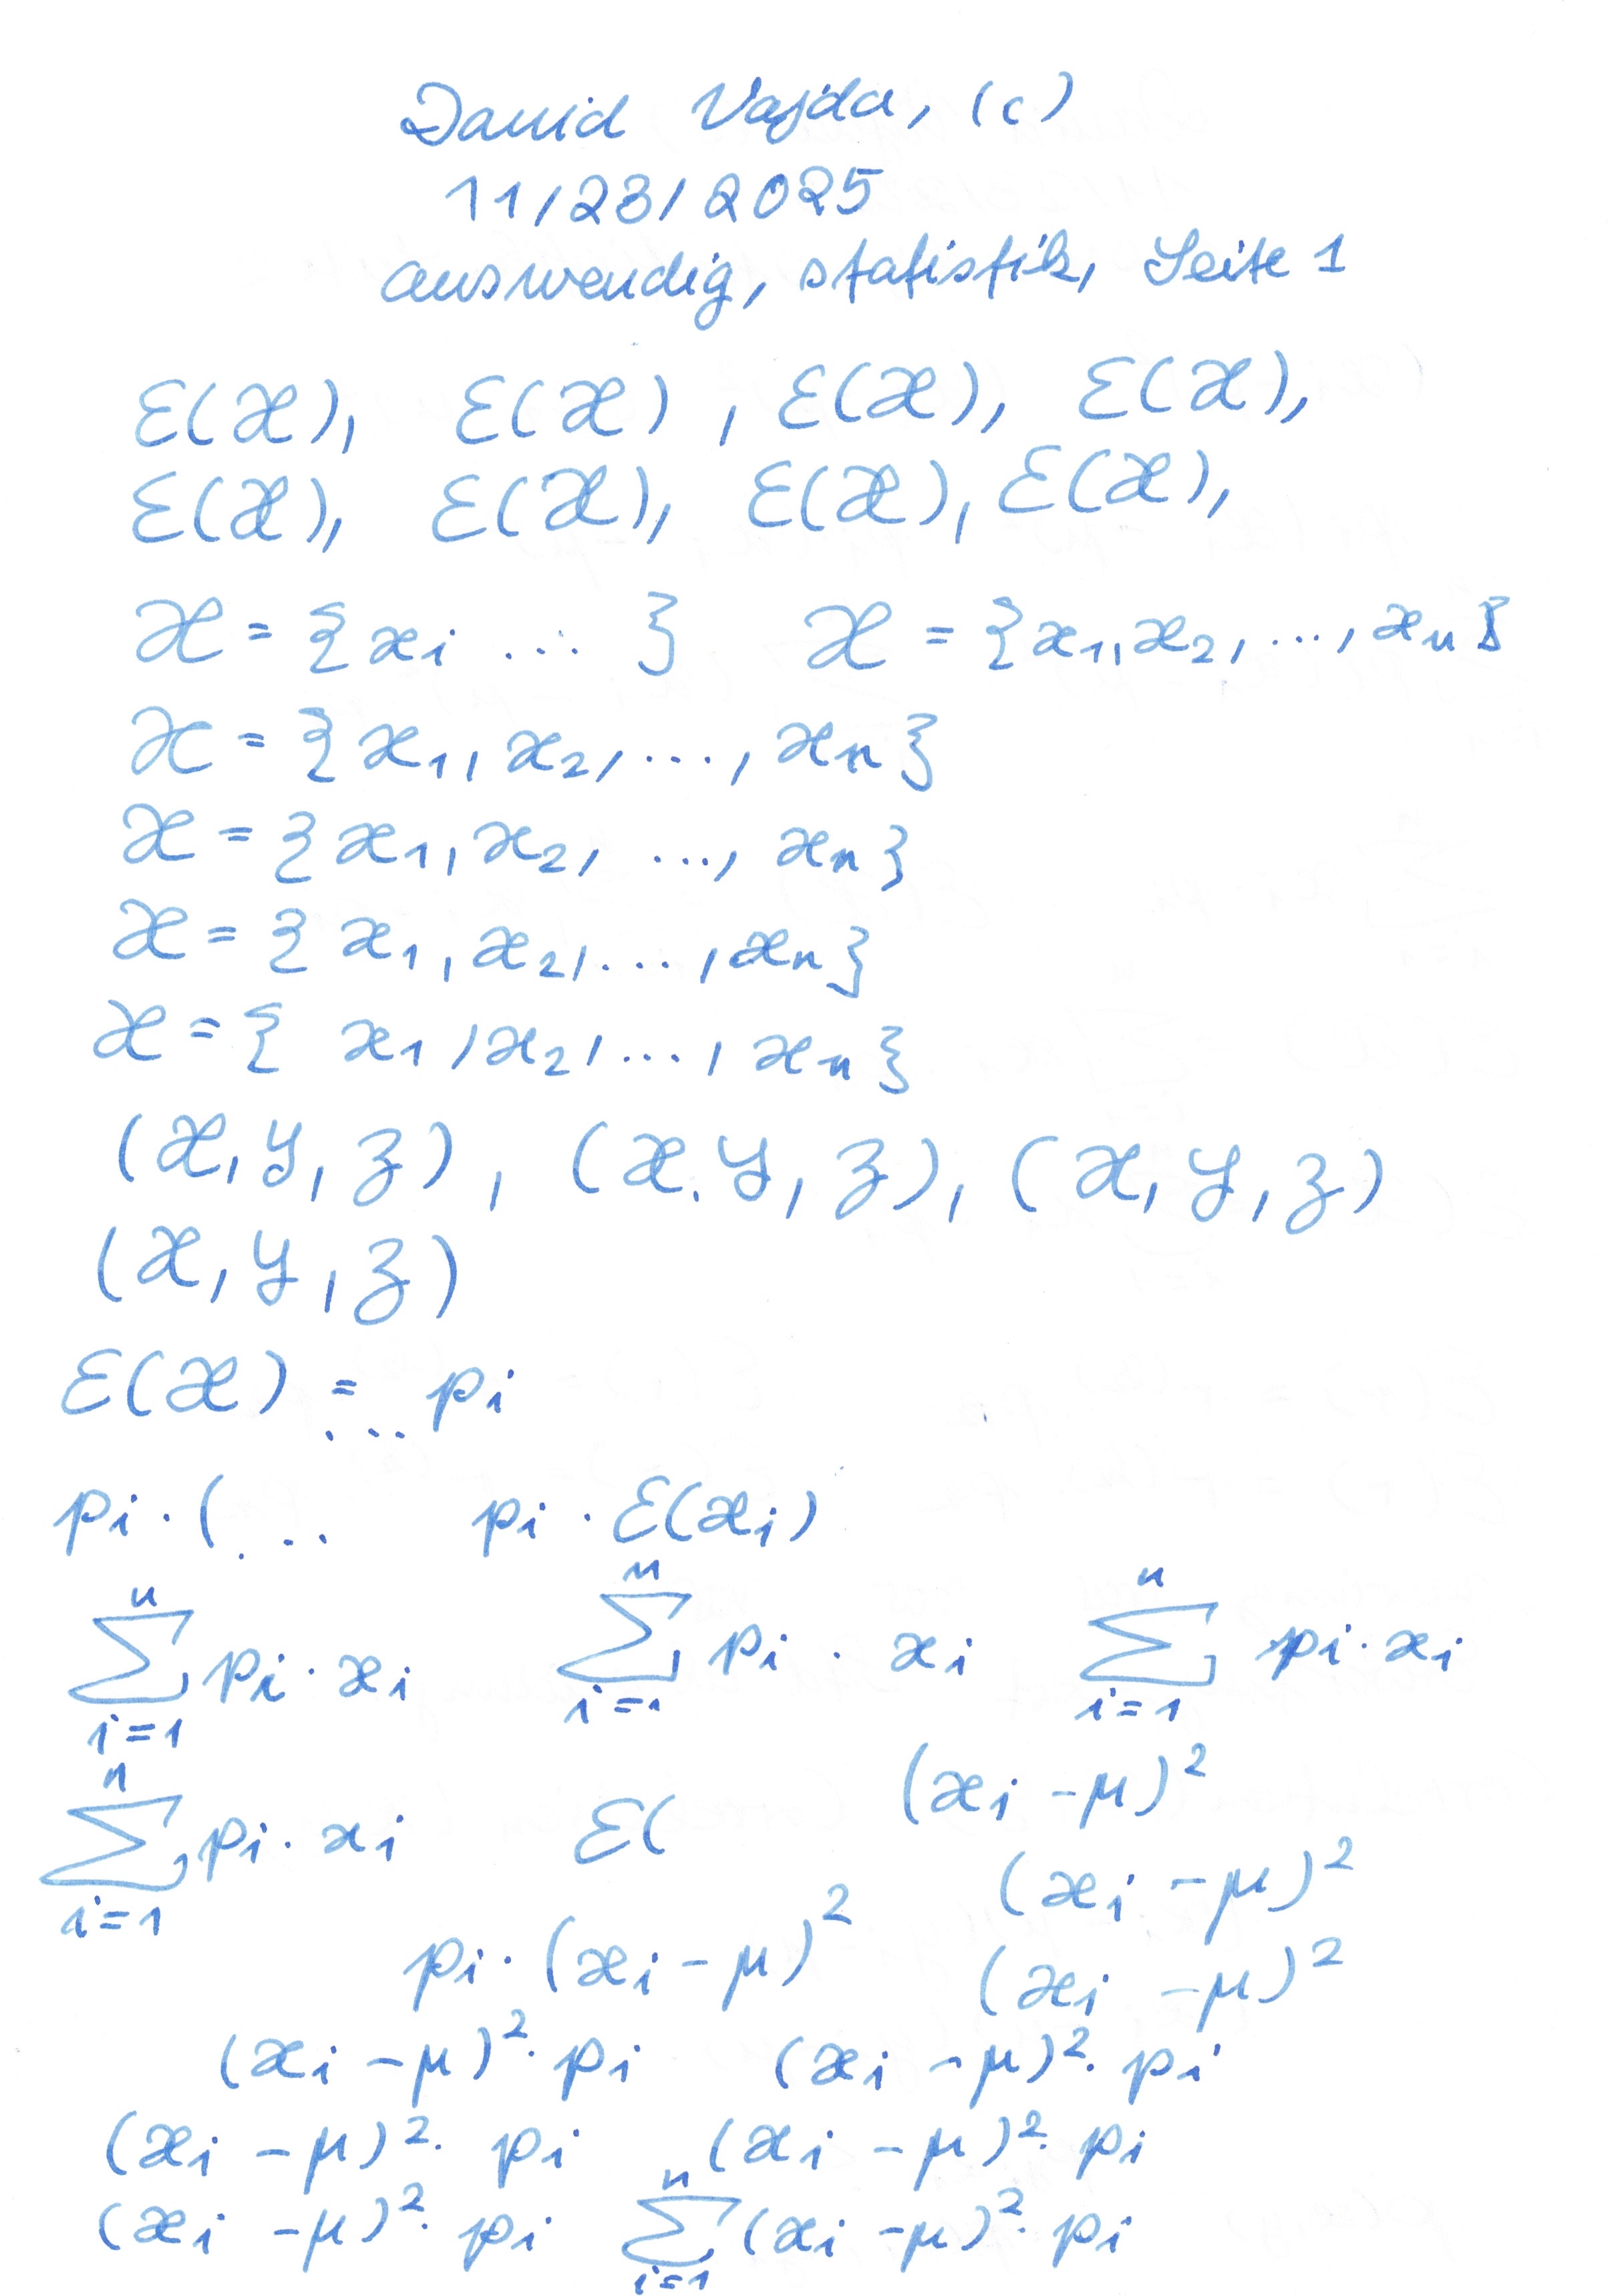 David Vajda, (c)
11/23/2025
auswendig, statistik, Seite 1
E(X), E(X), E(X), E(X),
E(X), E(X), E(X), E(X),
X = {xi ... } X = {x1, x2, ..., xn}
X = {x1, x2, ..., xn}
X = {x1, x2, ..., xn}
X = {x1, x2, ..., xn}
X = {x1, x2, ..., xn}
(X, Y, Z), (X, Y, Z), (X, Y, Z)
(X, Y, Z)
E(X) = ... pi
pi · (... pi · E(xi)
∑_{i=1}^{n} pi · xi ∑_{i=1}^{n} pi · xi ∑_{i=1}^{n} pi · xi
∑_{i=1}^{n} pi · xi E( (xi - μ)²
(xi - μ)²
pi · (xi - μ)² (xi - μ)²
(xi - μ)² · pi (xi - μ)² · pi
(xi - μ)² · pi (xi - μ)² · pi
(xi - μ)² · pi ∑_{i=1}^{n} (xi - μ)² · pi